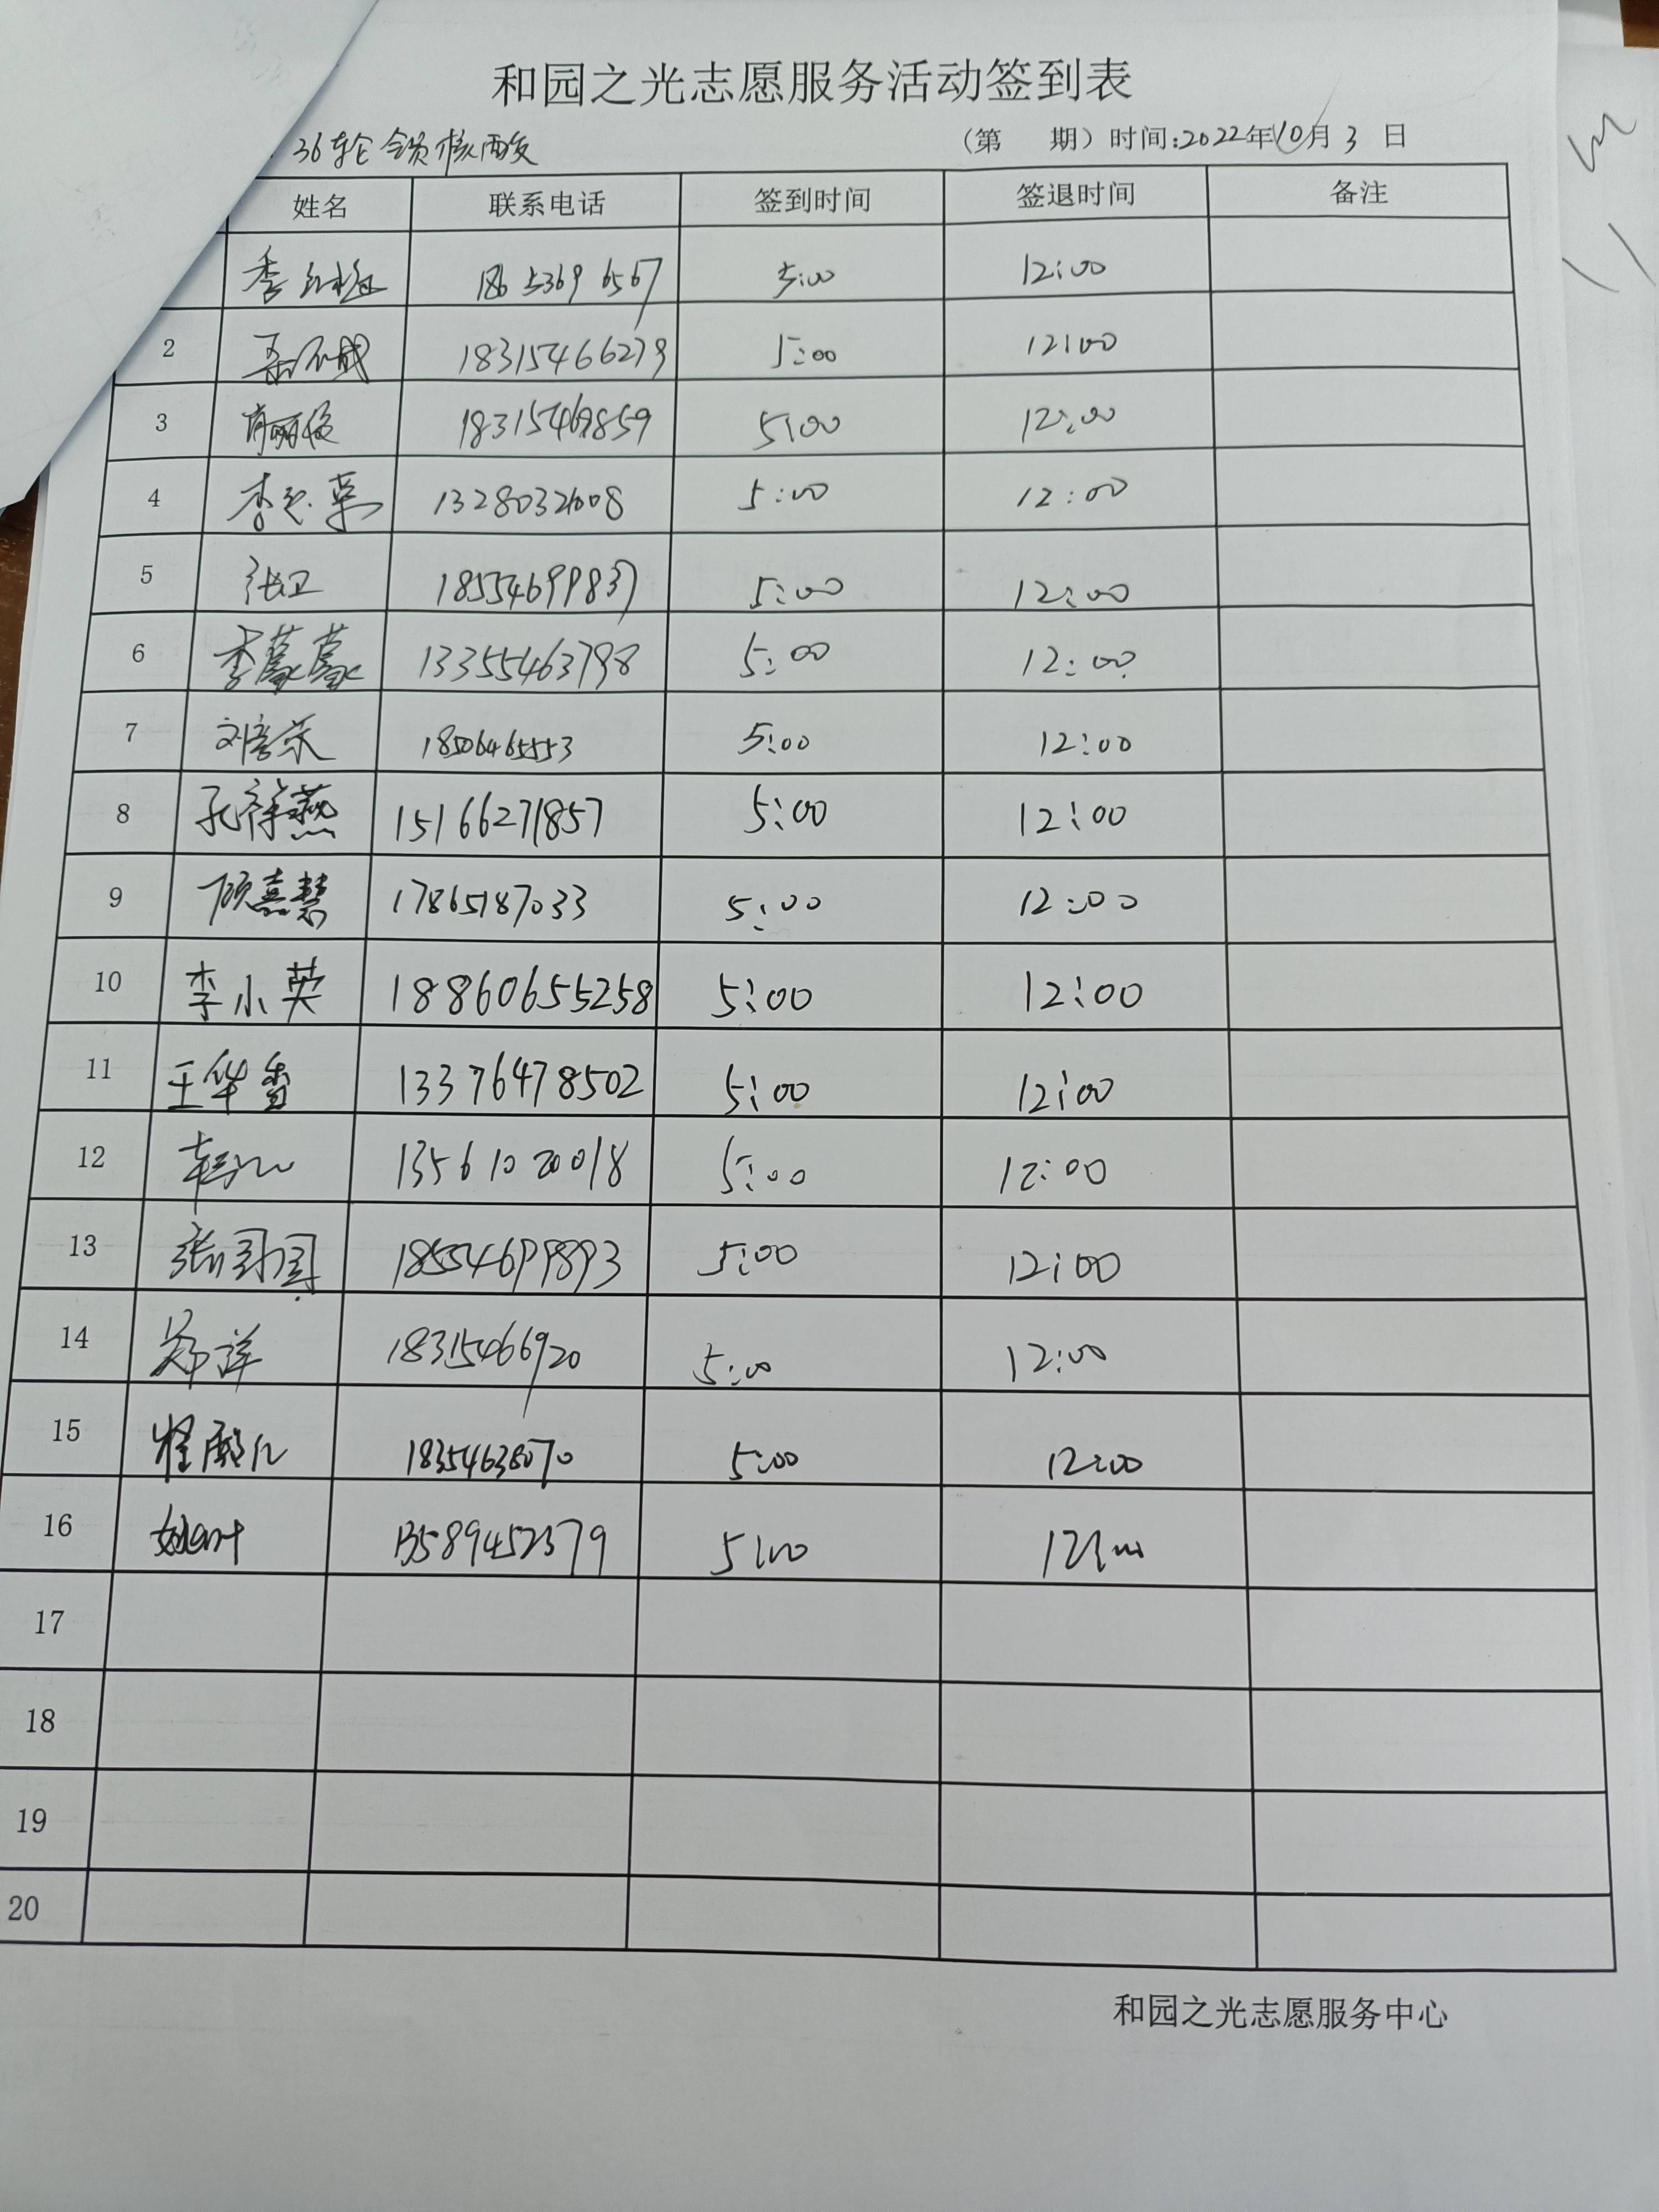 和园之光志愿服务活动签到表
36轮全员核酸 (第 期) 时间:2022年10月3日
姓名 联系电话 签到时间 签退时间 备注
季 5:00 12:00
2 18315466279 5:00 12:00
3 肖丽俊 18315469859 5:00 12:00
4 李 5:00 12:00
5 张卫 18554699837 5:00 12:00
6 李蒙蒙 13355463798 5:00 12:00
7 刘 荣 18506465553 5:00 12:00
8 孔祥燕 15166271857 5:00 12:00
9 顾嘉慧 17865187033 5:00 12:00
10 李小英 18860655258 5:00 12:00
11 王华香 13376478502 5:00 12:00
12 13561020018 5:00 12:00
13 张 18554699893 5:00 12:00
14 郑洋 18315466920 5:00 12:00
15 18354638070 5:00 12:00
16 13589452379 5:00 12:00
17
18
19
20
和园之光志愿服务中心